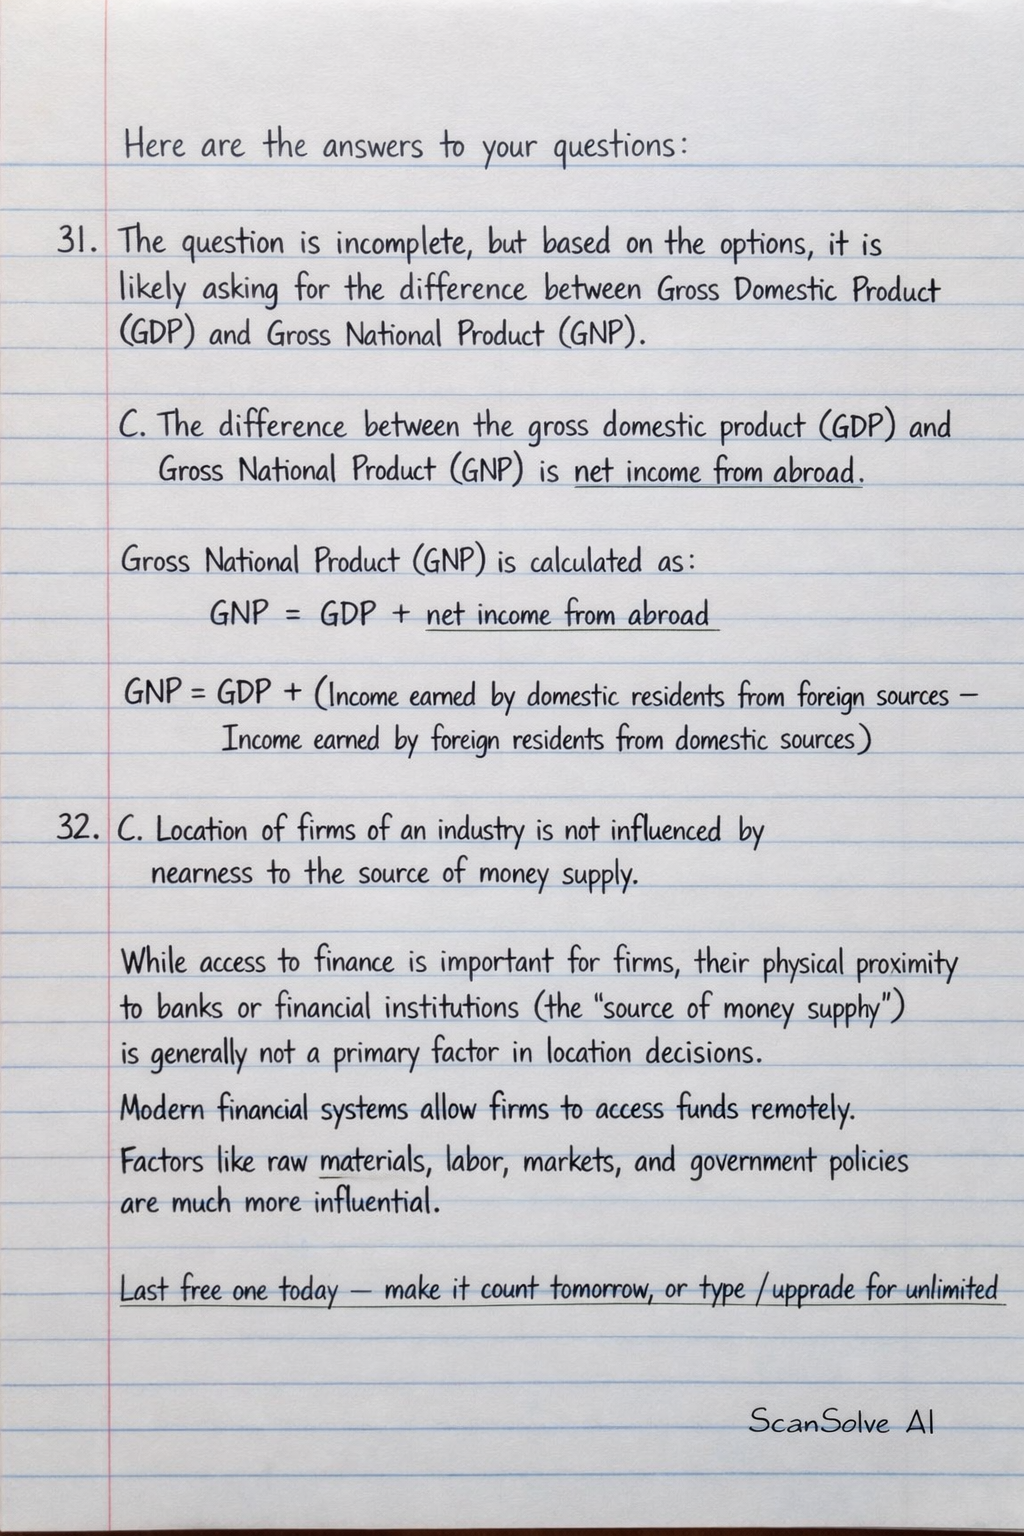 Here are the answers to your questions:
31. The question is incomplete, but based on the options, it is
likely asking for the difference between Gross Domestic Product
(GDP) and Gross National Product (GNP).
C. The difference between the gross domestic product (GDP) and
Gross National Product (GNP) is net income from abroad.
Gross National Product (GNP) is calculated as:
GNP = GDP + net income from abroad
GNP = GDP + (Income earned by domestic residents from foreign sources –
Income earned by foreign residents from domestic sources)
32. C. Location of firms of an industry is not influenced by
nearness to the source of money supply.
While access to finance is important for firms, their physical proximity
to banks or financial institutions (the "source of money supphy")
is generally not a primary factor in location decisions.
Modern financial systems allow firms to access funds remotely.
Factors like raw materials, labor, markets, and government policies
are much more influential.
Last free one today — make it count tomorrow, or type /upprade for unlimited
ScanSolve AI